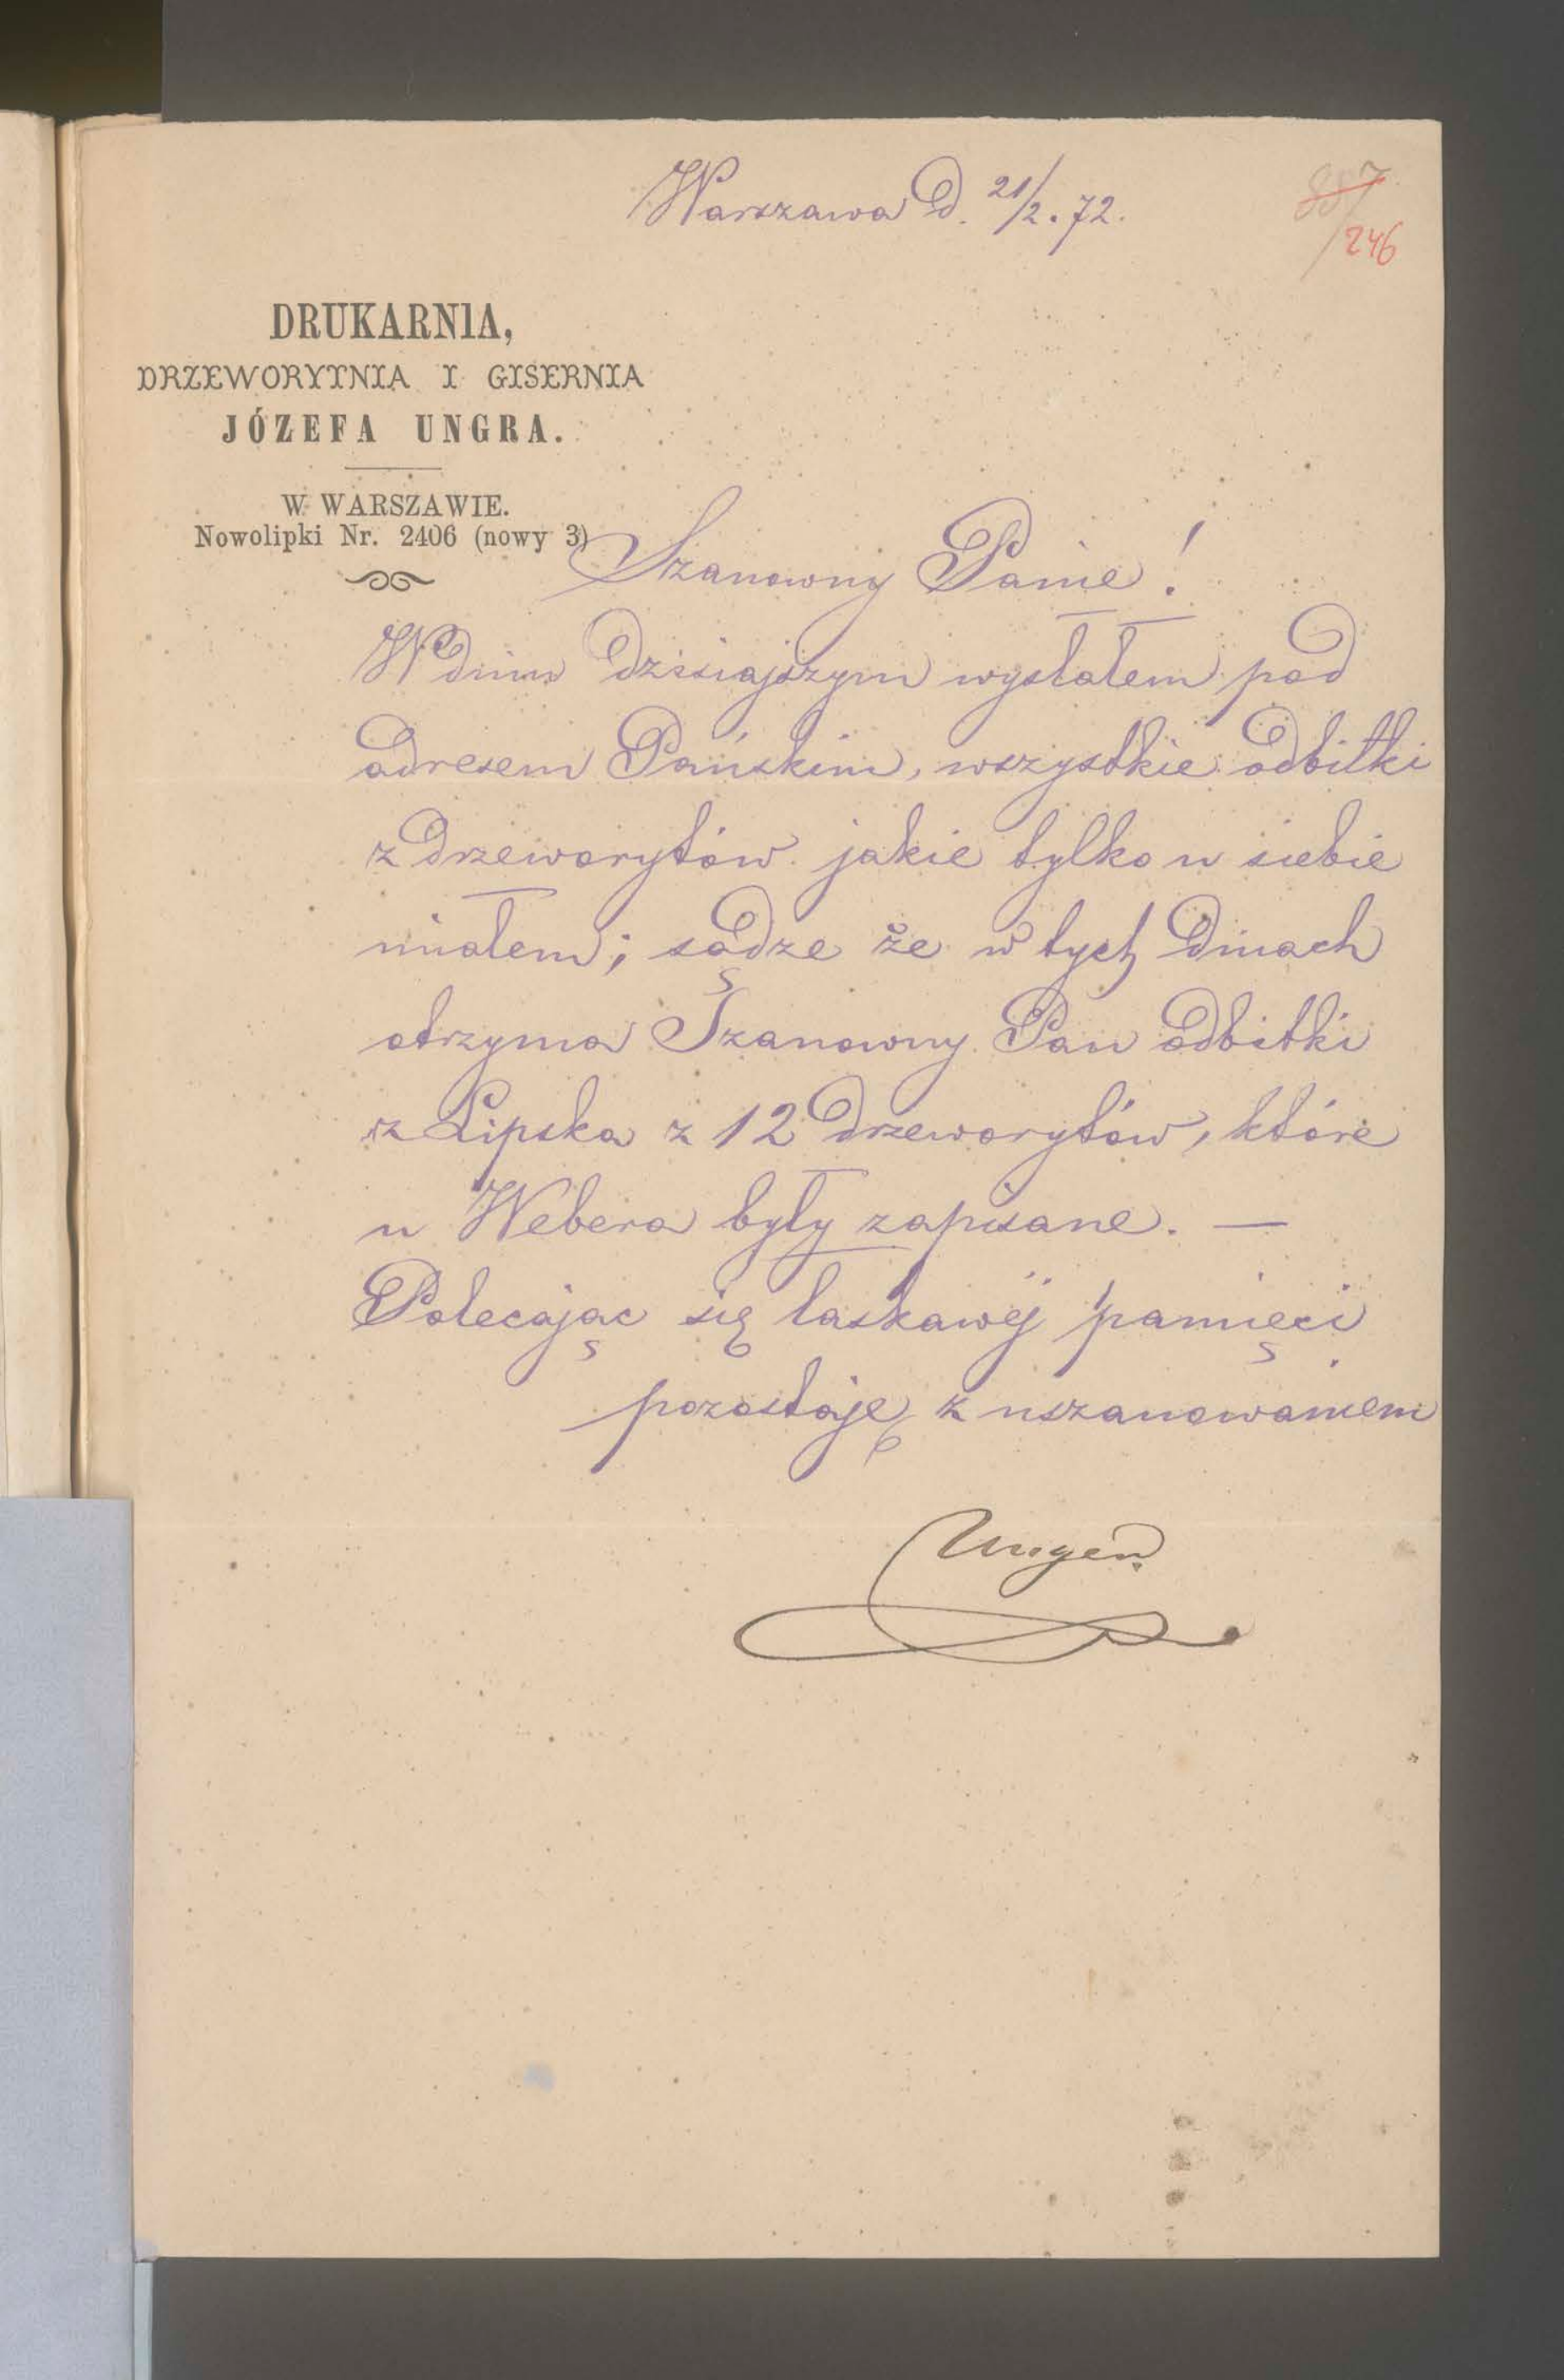 Warszawa d. 21/2. 72.
887
246
DRUKARNIA,
DRZEWORYTNIA I GISERNIA
JÓZEFA UNGRA.
W WARSZAWIE.
Nowolipki Nr. 2406 (nowy 3)
Szanowny Panie!
W dniu dzisiajszym wysłałem pod
adresem Pańskim, wszystkie odbitki
z drzeworytów jakie tylko u siebie
miałem; sądze że w tych dniach
otrzyma Szanowny Pan odbitki
z Lipska z 12 drzeworytów, które
u Webera były zapisane. —
Polecając się łaskawéj pamięci
pozostaję z uszanowaniem
Unger.